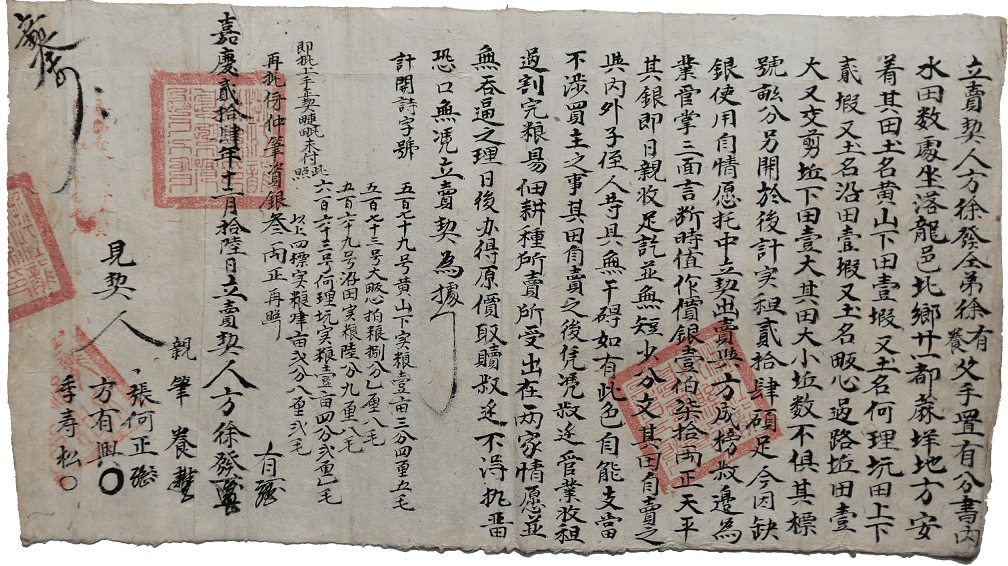 立賣契人方徐發仝弟徐有養父手置有分書內
水田数處坐落龍邑北鄉廿一都蔴垟地方安
着其田土名黄山下田壹塅又土名何理坑田上下
貳塅又土名沿田壹塅又土名畈心過路坵田壹
大又交剪坵下田壹大其田大小坵数不俱其標
號畝分另開於後計实租貳拾肆碩足今因缺
銀使用自情愿托中立契出賣與方成榜叔邊為
業管掌三面言断時值作價銀壹伯柒拾两正天平
其銀即日親收足訖並無短少分文其田自賣之
與內外子侄人等具無干碍如有此色自能支當
不涉買主之事其田自賣之後任凭叔边管業收租
過割完粮易佃耕種所賣所受出在两家情愿並
無吞逼之理日後办得原價取贖叔边不得执畱
恐口無凴立賣契為據
計開詩字號
五百七十九号黄山下实粮壹亩三分四厘五毛
五百七十三号大畈心拍粮捌分乙厘八毛
五百六十九号沿田实粮陸分九厘八毛
六百六十三号何理坑实粮壹亩四分弍厘乙毛
以上四標实粮肆亩弍分八厘弍毛
即批上手正契未付此照
再批仲筆資銀叁两正再照
嘉慶貳拾肆年十二月拾陸日立賣契人方徐發
有
親筆養
見契人
張何正
方有興
季寿松